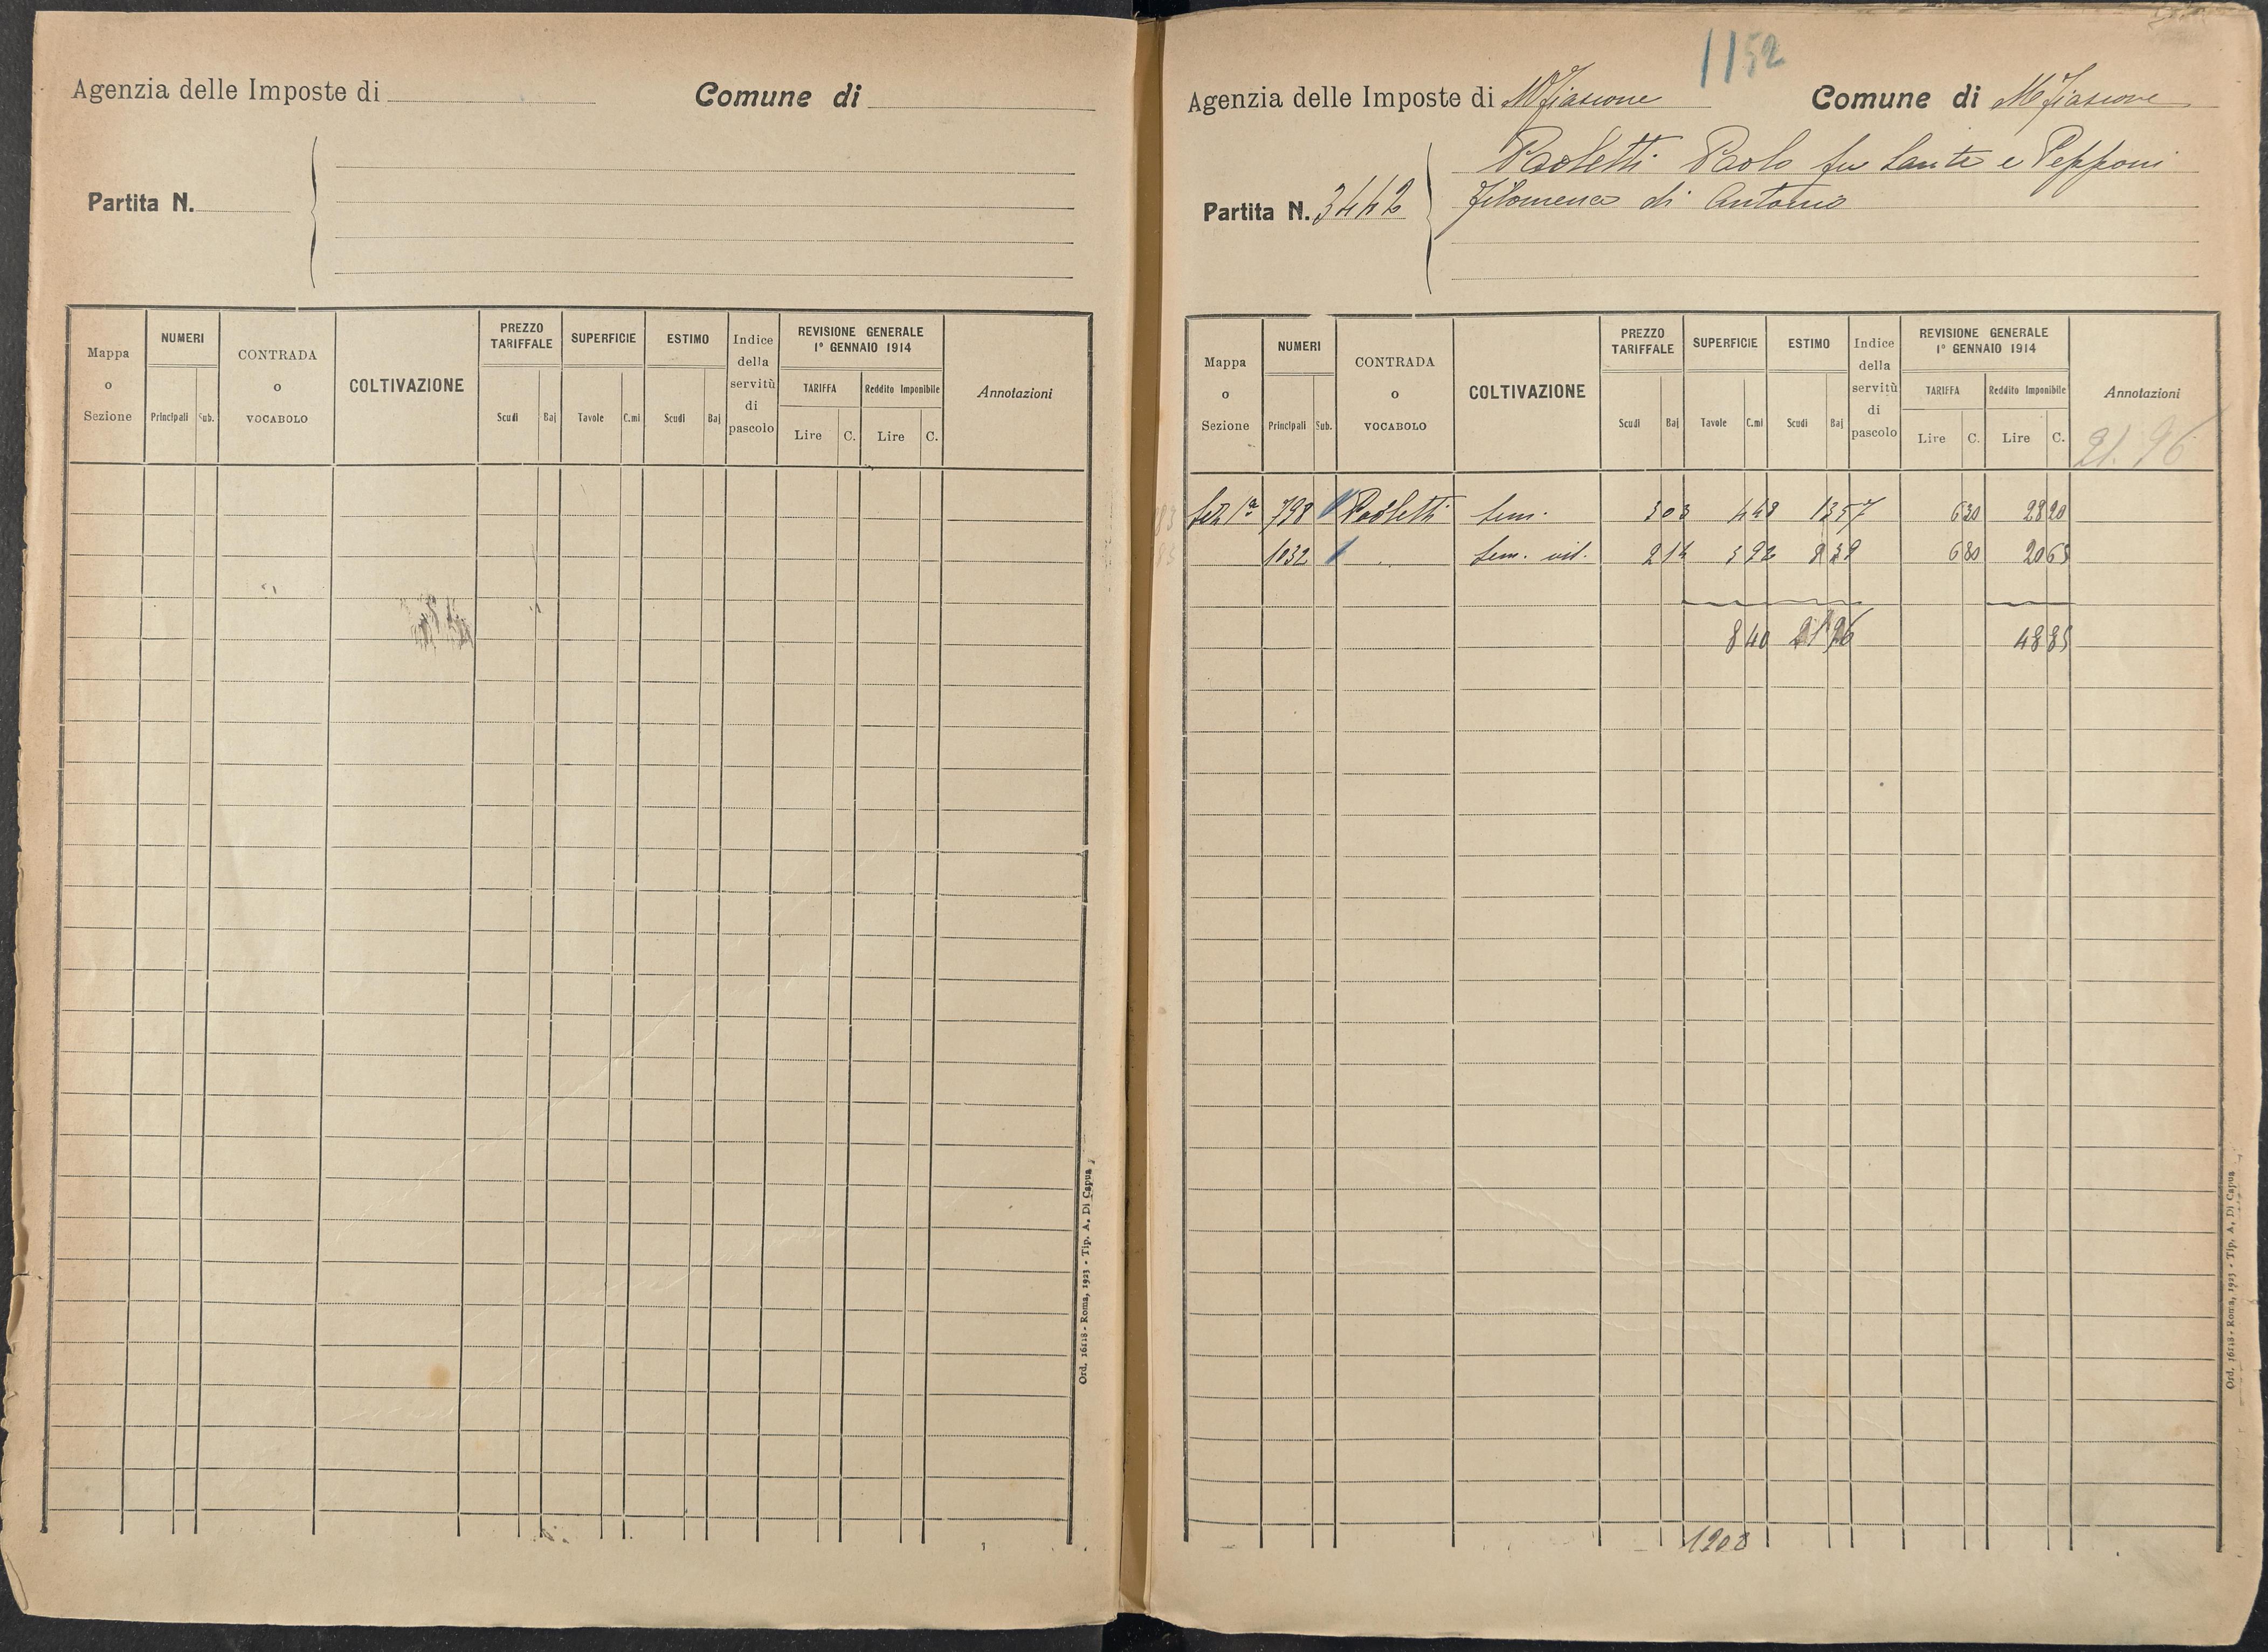 Agenzia delle Imposte di
Comune di
Partita N.
Mappa o Sezione
NUMERI
Principali
Sub.
CONTRADA o VOCABOLO
COLTIVAZIONE
PREZZO TARIFFALE
Scudi
Baj
SUPERFICIE
Tavole
C.mi
ESTIMO
Scudi
Baj
Indice della servitù di pascolo
REVISIONE GENERALE
1° GENNAIO 1914
TARIFFA
Lire
C.
Reddito Imponibile
Lire
C.
Annotazioni
Ord. 16118 - Roma, 1923 - Tip. A. Di Capua
1152
Agenzia delle Imposte di Mfiascone
Comune di Mfiascone
Paoletti Paolo fu Sante e Pepponi
Partita N. 3442
Filomena di Antonio
Mappa o Sezione
NUMERI
Principali
Sub.
CONTRADA o VOCABOLO
COLTIVAZIONE
PREZZO TARIFFALE
Scudi
Baj
SUPERFICIE
Tavole
C.mi
ESTIMO
Scudi
Baj
Indice della servitù di pascolo
REVISIONE GENERALE
1° GENNAIO 1914
TARIFFA
Lire
C.
Reddito Imponibile
Lire
C.
Annotazioni
21.96
Sez 1ª 798 Paoletti Sem. 3 03 4 48 13 57 6 30 28 20
1032 Sem. vit. 2 14 3 92 8 39 6 80 20 65
8 40 21 96 48 85
1208
Ord. 16118 - Roma, 1923 - Tip. A. Di Capua